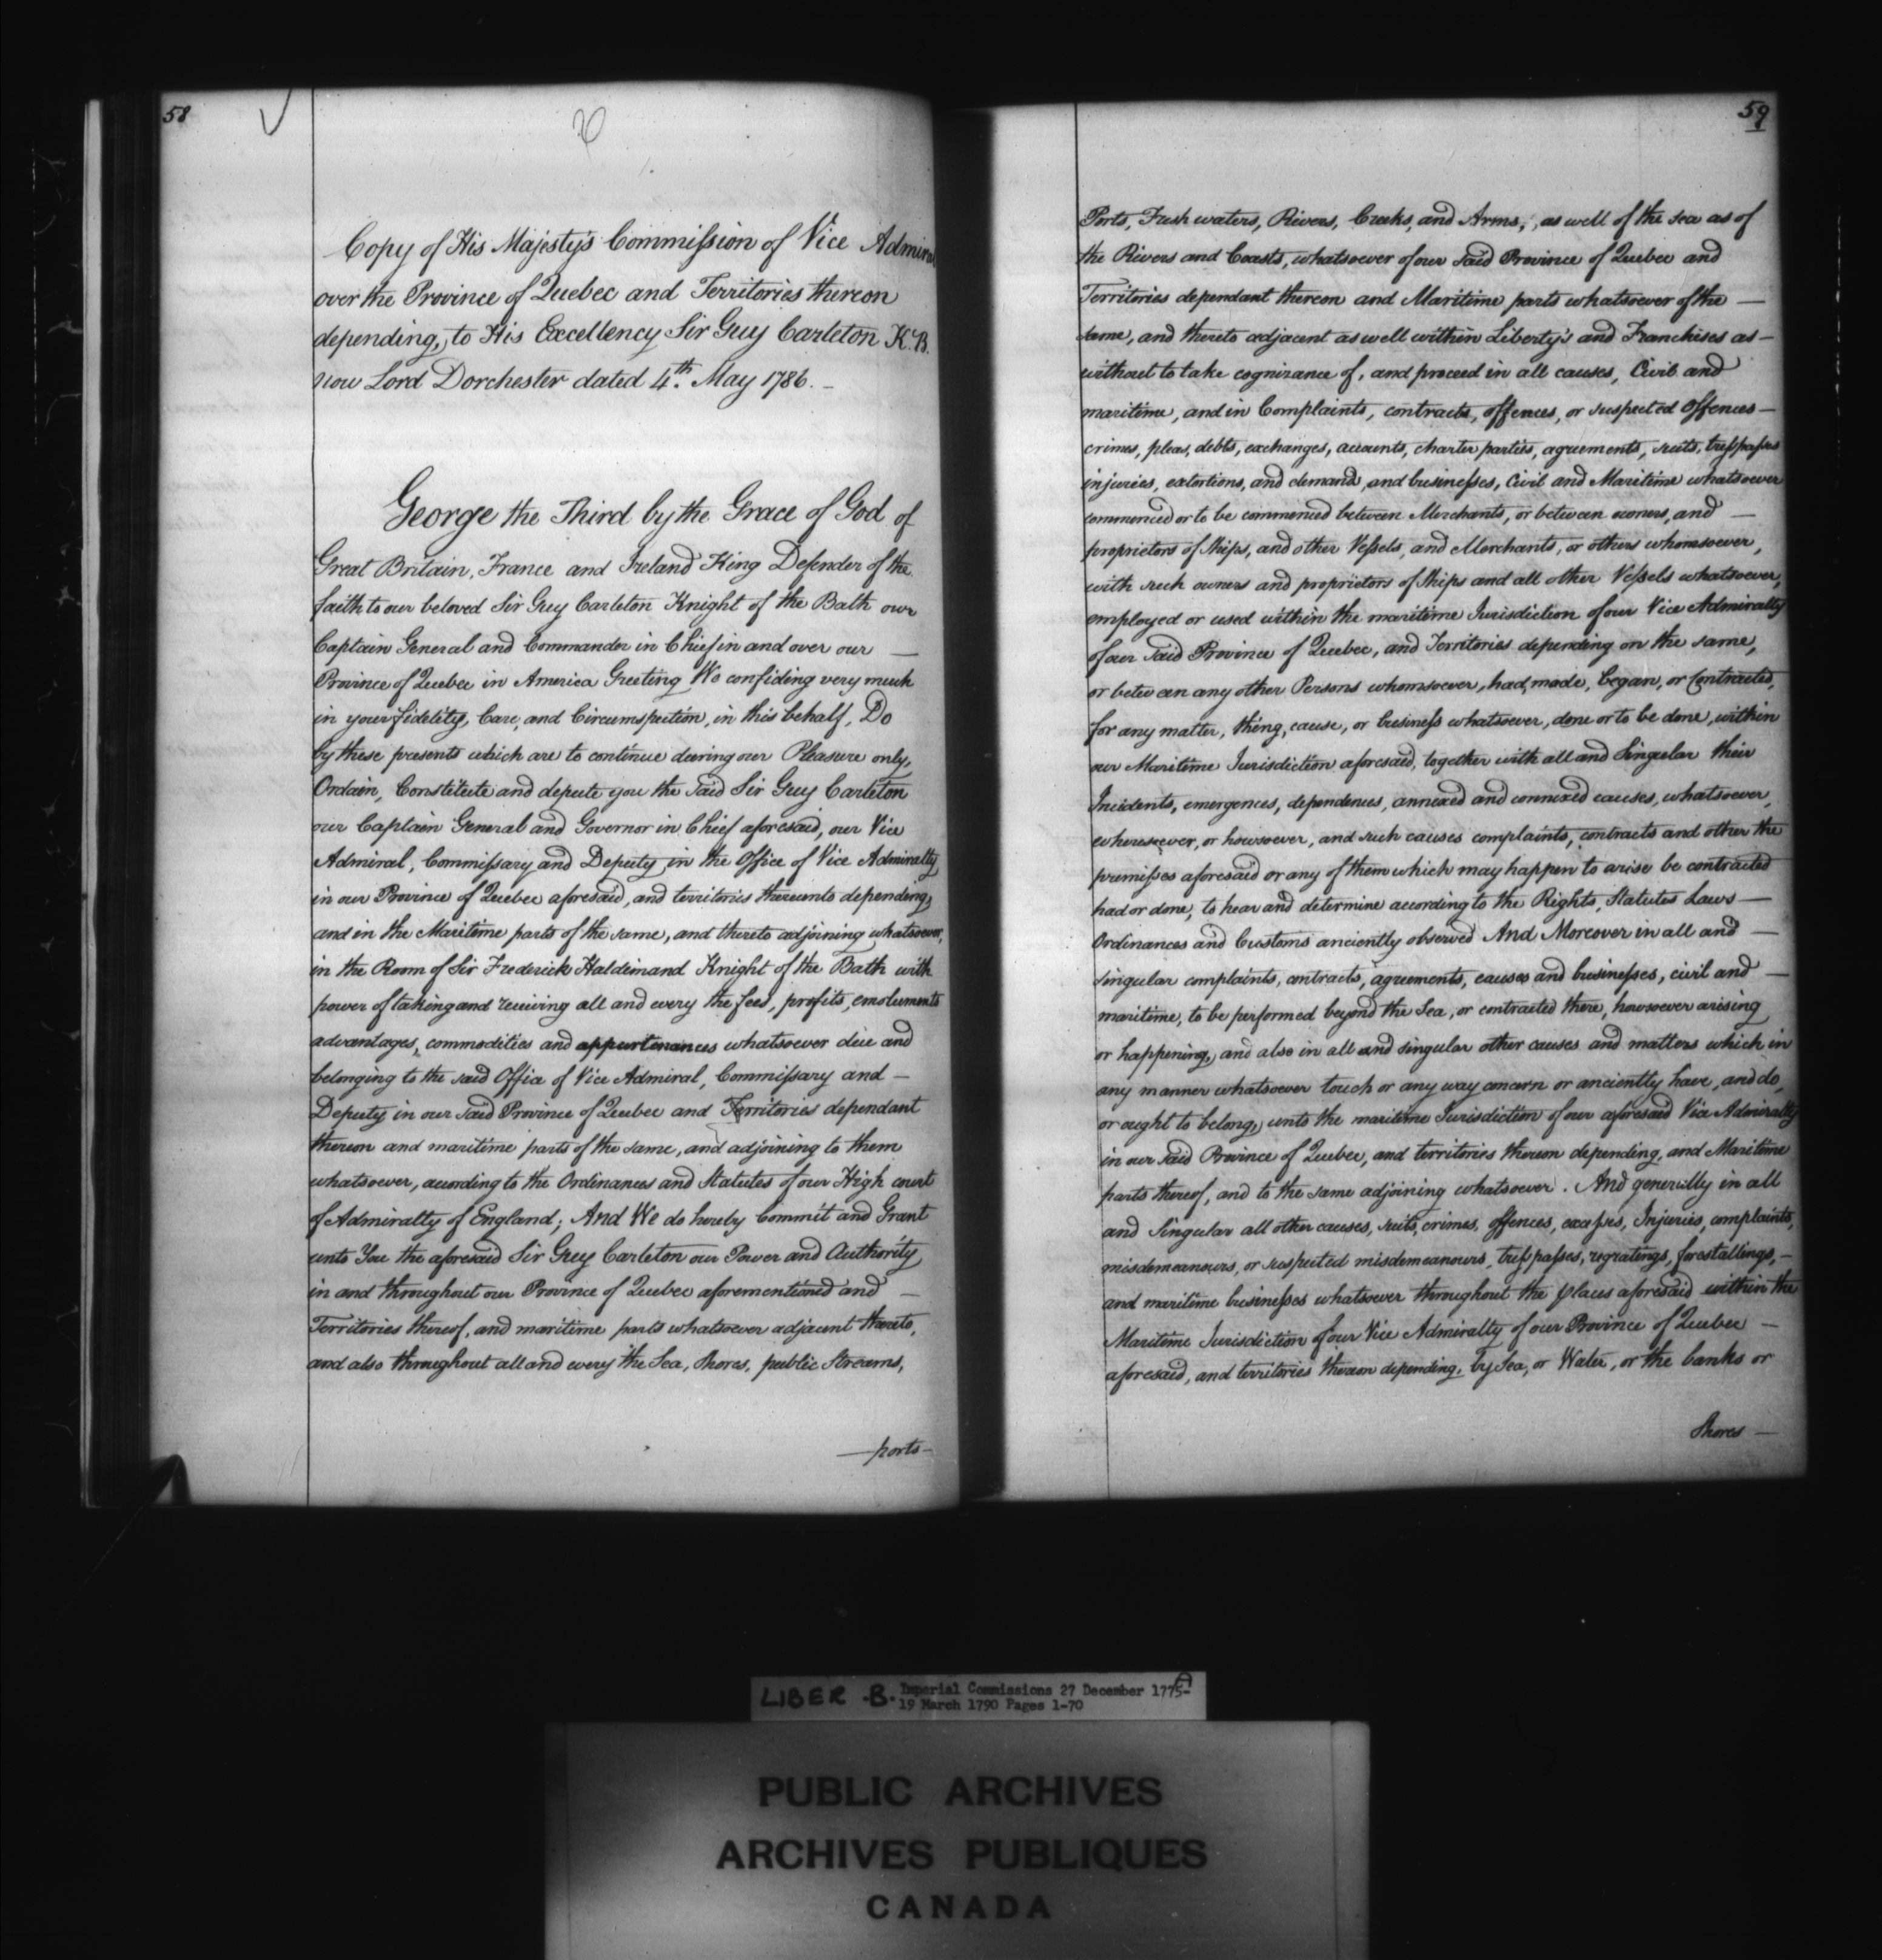 58
Copy of His Majesty's Commission of Vice Admiral
over the Province of Quebec and Territories thereon
depending, to His Excellency Sir Guy Carleton K.B.
now Lord Dorchester dated 4th May 1786. –
George the Third by the Grace of God of
Great Britain, France and Ireland King Defender of the
faith to our beloved Sir Guy Carleton Knight of the Bath our
Captain General and Commander in Chief in and over our —
Province of Quebec in America Greeting We confiding very much
in your fidelity, Care, and Circumspection, in this behalf, Do
by these presents which are to continue during our Pleasure only,
Ordain, Constitute and depute you the said Sir Guy Carleton
our Captain General and Governor in Chief aforesaid, our Vice
Admiral, Commissary and Deputy in the Office of Vice Admiralty
in our Province of Quebec aforesaid, and territories thereunto depending,
and in the Maritime parts of the same, and thereto adjoining whatsoever,
in the Room of Sir Frederick Haldimand Knight of the Bath with
power of taking and receiving all and every the fees, profits, emoluments
advantages, commodities and appurtenances whatsoever due and
belonging to the said Office of Vice Admiral, Commissary and –
Deputy in our said Province of Quebec and Territories dependant
thereon and maritime parts of the same, and adjoining to them
whatsoever, according to the Ordinances and Statutes of our High court
of Admiralty of England; And We do hereby Commit and Grant
unto You the aforesaid Sir Guy Carleton our Power and Authority
in and throughout our Province of Quebec aforementioned and –
Territories thereof, and maritime parts whatsoever adjacent thereto,
and also throughout all and every the Sea, Shores, public Streams,
—ports–
59
Ports, Fresh waters, Rivers, Creeks, and Arms, as well of the sea as of
the Rivers and Coasts, whatsoever of our said Province of Quebec and
Territories dependant thereon and Maritime parts whatsoever of the —
same, and thereto adjacent as well within Liberty's and Franchises as –
without to take cognizance of, and proceed in all causes, Civil and
maritime, and in Complaints, contracts, offences, or suspected offences –
crimes, pleas, debts, exchanges, accounts, charter parties, agreements, suits, tresspasses
injuries, extortions, and demands, and businesses, Civil and Maritime whatsoever
commenced or to be commenced between Merchants, or between owners, and —
proprietors of Ships, and other Vessels, and Merchants, or others whomsoever,
with such owners and proprietors of Ships and all other Vessels whatsoever,
employed or used within the maritime Jurisdiction of our Vice Admiralty
of our said Province of Quebec, and Territories depending on the same,
or between any other Persons whomsoever, had, made, began, or Contracted,
for any matter, thing, cause, or business whatsoever, done or to be done, within
our Maritime Jurisdiction aforesaid, together with all and Singular their
Incidents, emergences, dependences, annexed and connexed causes, whatsoever,
wheresoever, or howsoever, and such causes complaints, contracts and other the
premisses aforesaid or any of them which may happen to arise be contracted
had or done, to hear and determine according to the Rights, Statutes Laws —
Ordinances and Customs anciently observed And Moreover in all and —
singular complaints, contracts, agreements, causes and businesses, civil and —
maritime, to be performed beyond the Sea, or contracted there, howsoever arising
or happening, and also in all and singular other causes and matters which in
any manner whatsoever touch or any way concern or anciently have, and do,
or ought to belong, unto the maritime Jurisdiction of our aforesaid Vice Admiralty
in our said Province of Quebec, and territories thereon depending, and Maritime
parts thereof, and to the same adjoining whatsoever. And generally in all
and Singular all other causes, suits, crimes, offences, excesses, Injuries, complaints,
misdemeanours, or suspected misdemeanours, tresspasses, regratings, forestallings, –
and maritime businesses whatsoever throughout the places aforesaid within the
Maritime Jurisdiction of our Vice Admiralty of our Province of Quebec –
aforesaid, and territories thereon depending, by Sea, or Water, or the banks or
Shores —
LIBER -B. Imperial Commissions 27 December 1775-
19 March 1790 Pages 1-70
PUBLIC ARCHIVES
ARCHIVES PUBLIQUES
CANADA